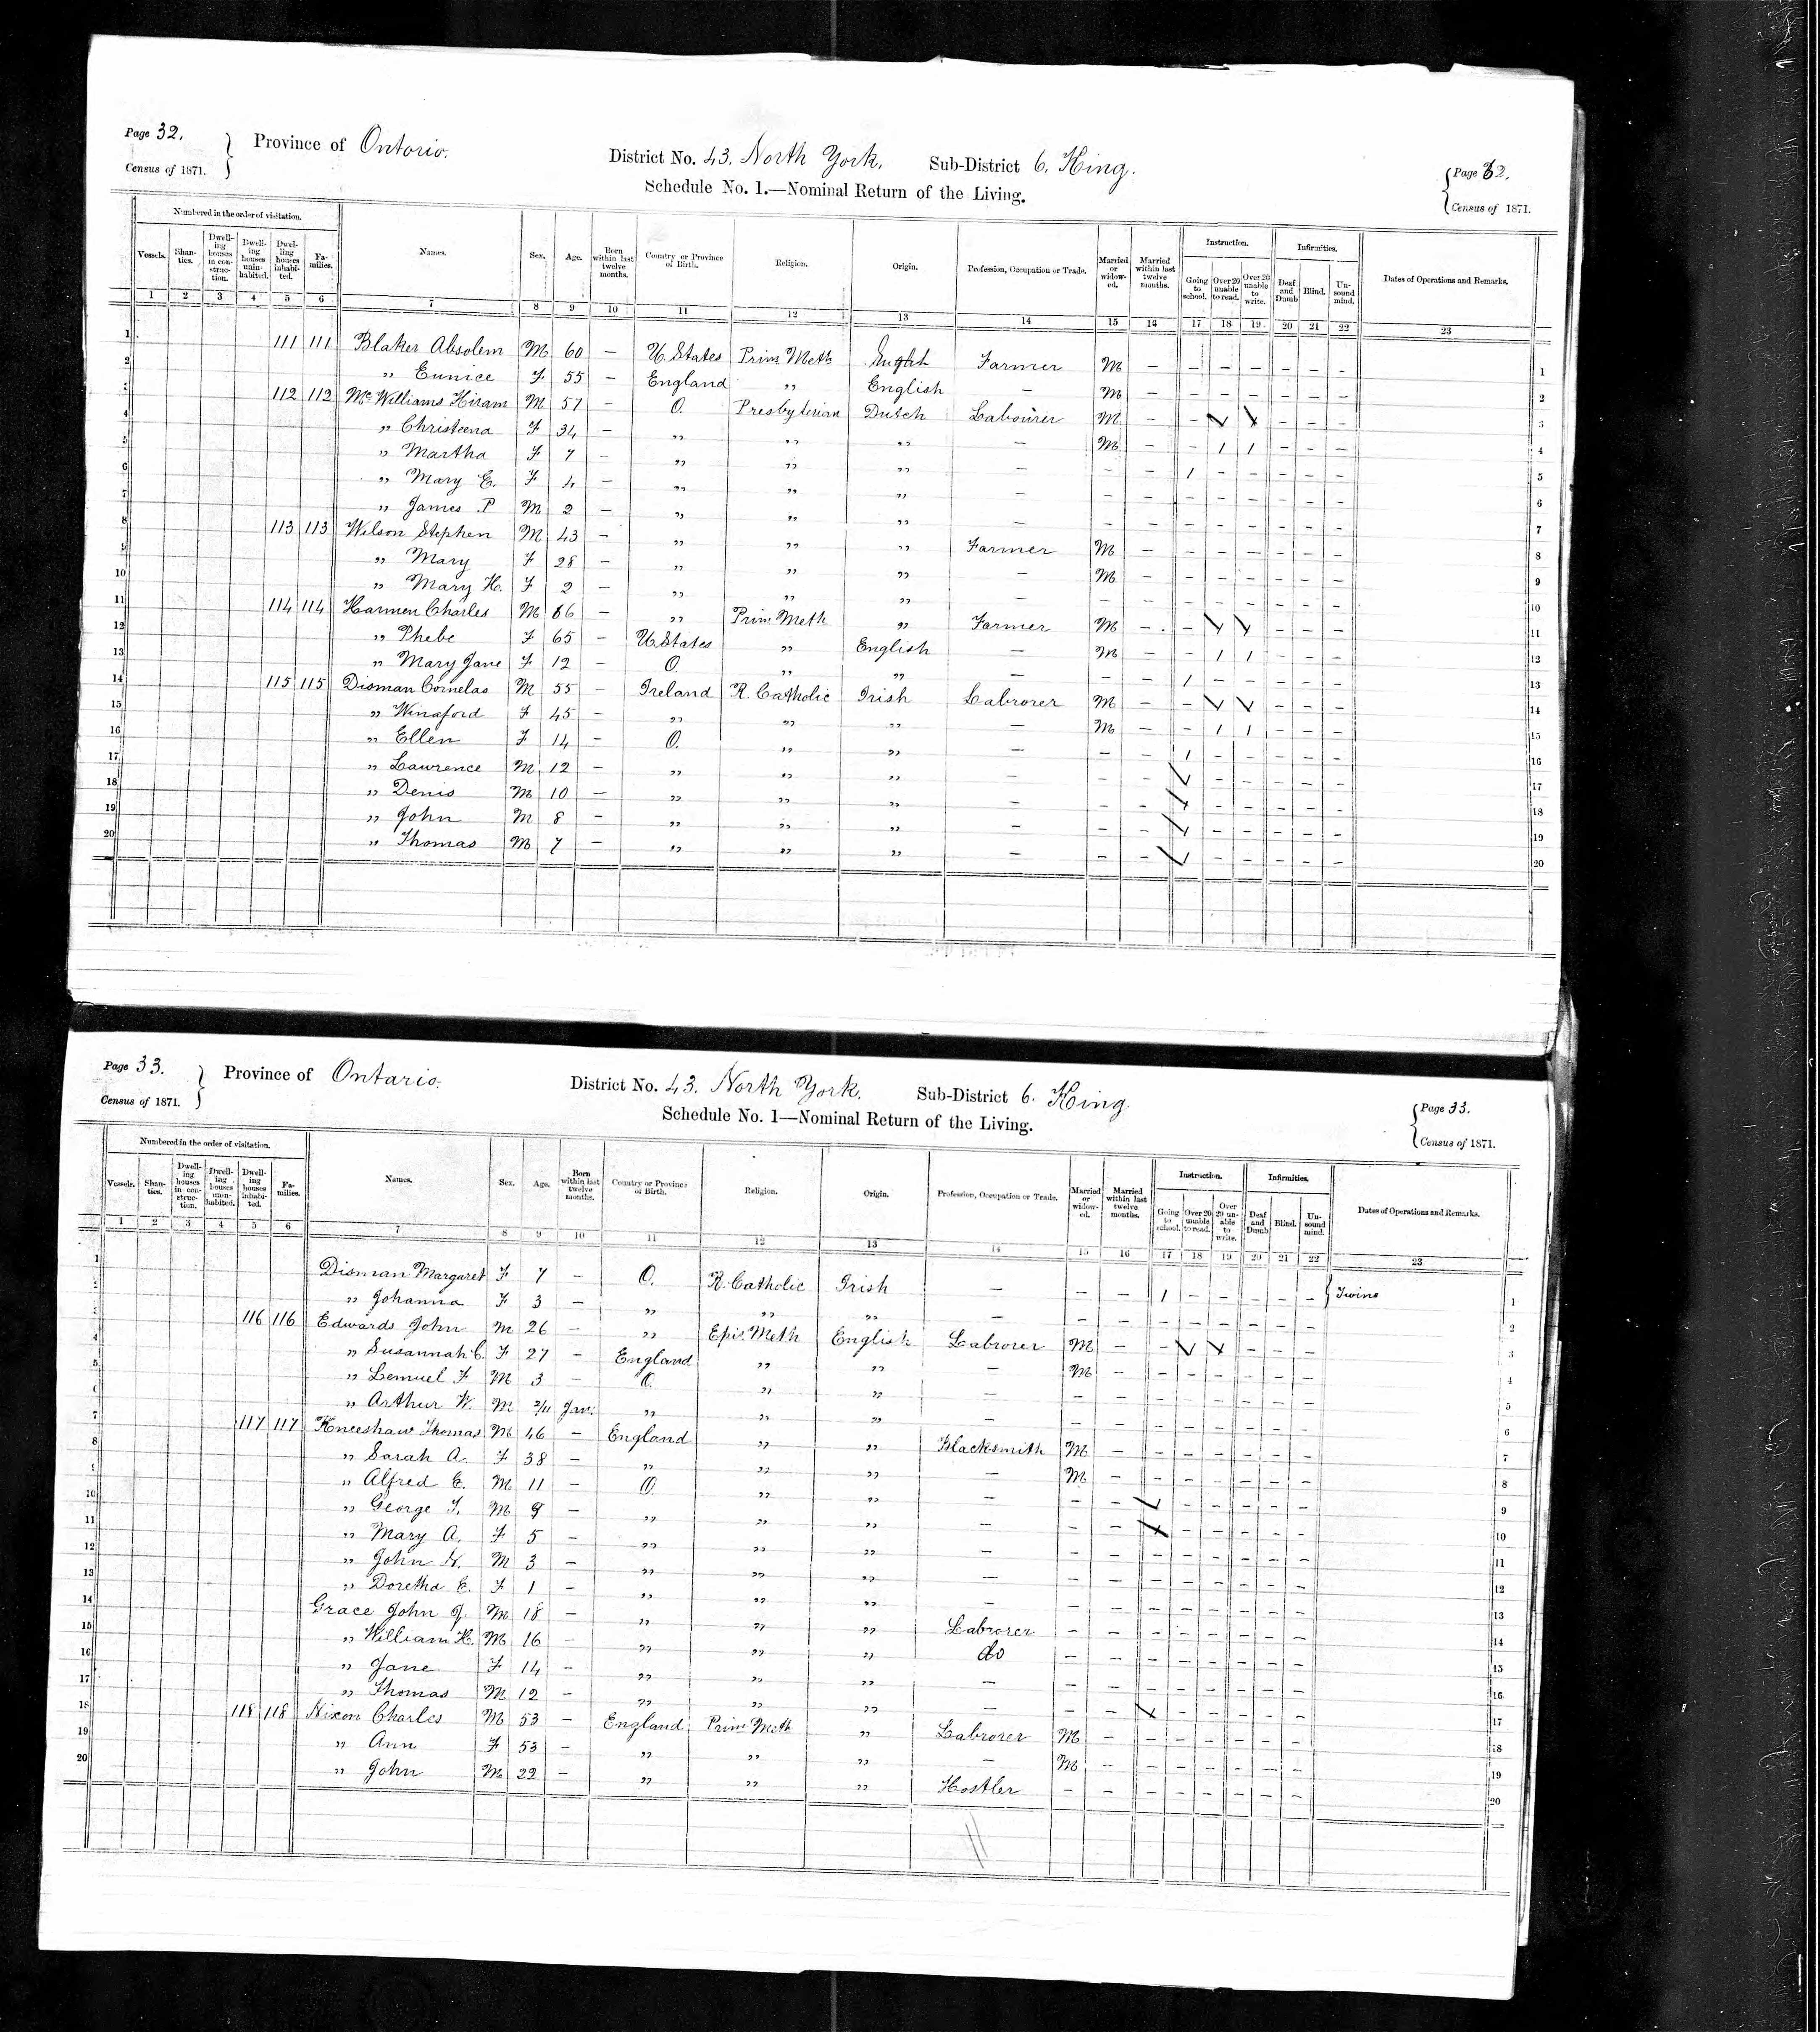 Page 32.
Census of 1871.
Province of Ontario.
District No. 43. North York. Sub-District 6. King.
Schedule No. 1.—Nominal Return of the Living.
Page 32.
Census of 1871.
Numbered in the order of visitation. Names. Sex. Age. Born within last twelve months. Country or Province of Birth. Religion. Origin. Profession, Occupation or Trade. Married or widowed. Married within last twelve months. Instruction. Infirmities. Dates of Operations and Remarks.
Vessels. Shanties. Dwelling houses in construction. Dwelling houses uninhabited. Dwelling houses inhabited. Families. Going to school. Over 20 unable to read. Over 20 unable to write. Deaf and Dumb Blind. Unsound mind.
1 2 3 4 5 6 7 8 9 10 11 12 13 14 15 16 17 18 19 20 21 22 23
1 111 111 Blaker Absolem M 60 – U. States Prim Meth Farmer M – – – – – – – 1
2 „ Eunice F 55 – England „ English – M – – – – – – – 2
3 112 112 McWilliams Hiram M 57 – O. Presbyterian Dutch Labourer M – – 1 1 – – – 3
4 „ Christeena F 34 – „ „ „ – M – – 1 1 – – – 4
5 „ Martha F 7 – „ „ „ – – – 1 – – – – – 5
6 „ Mary E. F 4 – „ „ „ – – – – – – – – – 6
7 „ James P M 2 – „ „ „ – – – – – – – – – 7
8 113 113 Wilson Stephen M 43 – „ „ „ Farmer M – – – – – – – 8
9 „ Mary F 28 – „ „ „ – M – – – – – – – 9
10 „ Mary H. F 2 – „ „ „ – – – – – – – – – 10
11 114 114 Harmen Charles M 66 – „ Prim Meth „ Farmer M – – 1 1 – – – 11
12 „ Phebe F 65 – U. States „ English – M – – 1 1 – – – 12
13 „ Mary Jane F 12 – O „ „ – – – 1 – – – – – 13
14 115 115 Disman Cornelas M 55 – Ireland R. Catholic Irish Labrorer M – – 1 1 – – – 14
15 „ Winaford F 45 – „ „ „ – M – – 1 1 – – – 15
16 „ Ellen F 14 – O. „ „ – – – 1 – – – – – 16
17 „ Lawrence M 12 – „ „ „ – – – 1 – – – – – 17
18 „ Denis M 10 – „ „ „ – – – 1 – – – – – 18
19 „ John M 8 – „ „ „ – – – 1 – – – – – 19
20 „ Thomas M 7 – „ „ „ – – – 1 – – – – – 20
Page 33.
Census of 1871.
Province of Ontario.
District No. 43. North York. Sub-District 6. King.
Schedule No. 1—Nominal Return of the Living.
Page 33.
Census of 1871.
Numbered in the order of visitation. Names. Sex. Age. Born within last twelve months. Country or Province of Birth. Religion. Origin. Profession, Occupation or Trade. Married or widowed. Married within last twelve months. Instruction. Infirmities. Dates of Operations and Remarks.
Vessels. Shanties. Dwelling houses in construction. Dwelling houses uninhabited. Dwelling houses inhabited. Families. Going to school. Over 20 unable to read. Over 20 unable to write. Deaf and Dumb Blind. Unsound mind.
1 2 3 4 5 6 7 8 9 10 11 12 13 14 15 16 17 18 19 20 21 22 23
1 Disman Margaret F 7 – O. R. Catholic Irish – – – 1 – – – – – Twins 1
2 „ Johanna F 3 – „ „ „ – – – – – – – – – 2
3 116 116 Edwards John M 26 – „ Epis. Meth English Labrorer M – – 1 1 – – – 3
4 „ Susannah C. F 27 – England „ „ – M – – – – – – – 4
5 „ Lemuel F M 3 – O. „ „ – – – – – – – – – 5
6 „ Arthur W. M 2/11 Jan. „ „ „ – – – – – – – – – 6
7 117 117 Kneeshaw Thomas M 46 – England „ „ Blacksmith M – – – – – – – 7
8 „ Sarah A. F 38 – „ „ „ – M – – – – – – – 8
9 „ Alfred E. M 11 – O. „ „ – – – 1 – – – – – 9
10 „ George T. M 9 – „ „ „ – – – 1 – – – – – 10
11 „ Mary A. F 5 – „ „ „ – – – – – – – – – 11
12 „ John H. M 3 – „ „ „ – – – – – – – – – 12
13 „ Doretha E. F 1 – „ „ „ – – – – – – – – – 13
14 Grace John J. M 18 – „ „ „ Labrorer – – – – – – – – 14
15 „ William H. M 16 – „ „ „ do – – – – – – – – 15
16 „ Jane F 14 – „ „ „ – – – – – – – – – 16
17 „ Thomas M 12 – „ „ „ – – – 1 – – – – – 17
18 118 118 Nixon Charles M 53 – England Prim Meth „ Labrorer M – – – – – – – 18
19 „ Ann F 53 – „ „ „ – M – – – – – – – 19
20 „ John M 22 – „ „ „ Hostler – – – – – – – – 20